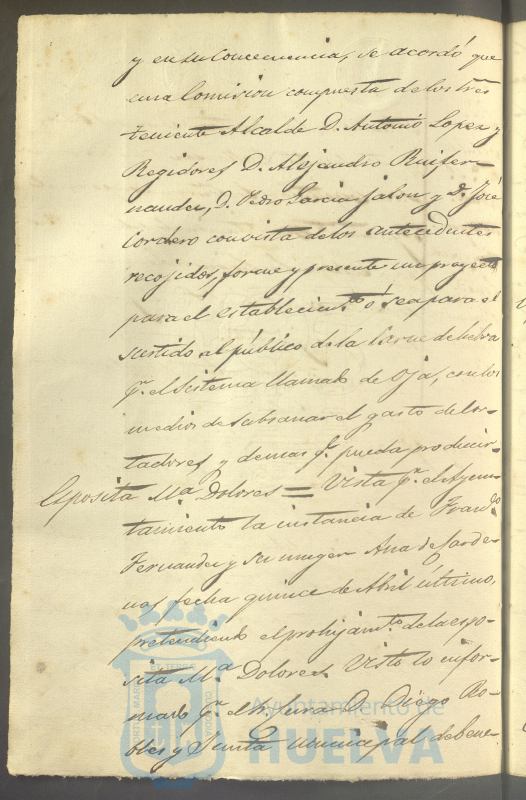 y en su Concecuencia, se acordó que
una Comision compuesta de los tres
teniente Alcalde D. Antonio Lopez y
Regidores D. Alejandro Ruifer-
nandez, D. Pedro Garcia Jalon y D. José
Cordero con vista de los antecedentes
recojidos, forme y presente un proyecto
para el establecimto. ó sea para el
surtido al público de la Carne de hebra
pr. el Sistema llamado de Oja, con los
medios de subsanar el gasto de Cor-
tadores, y demas qe. pueda producir-
Esposita Ma. Dolores = Vista pr. el Ayun-
tamiento la instancia de Frando.
Fernandez y su muger Ana de Jarde-
nas, fecha quince de Abril último,
pretendiendo el prohijamto. de la espo-
sita Ma. Dolores. Visto lo infor-
mado pr. el Sr. Cura D. Diego Ro-
bles y Junta municipal de bene-
Ayuntamiento de
HUELVA